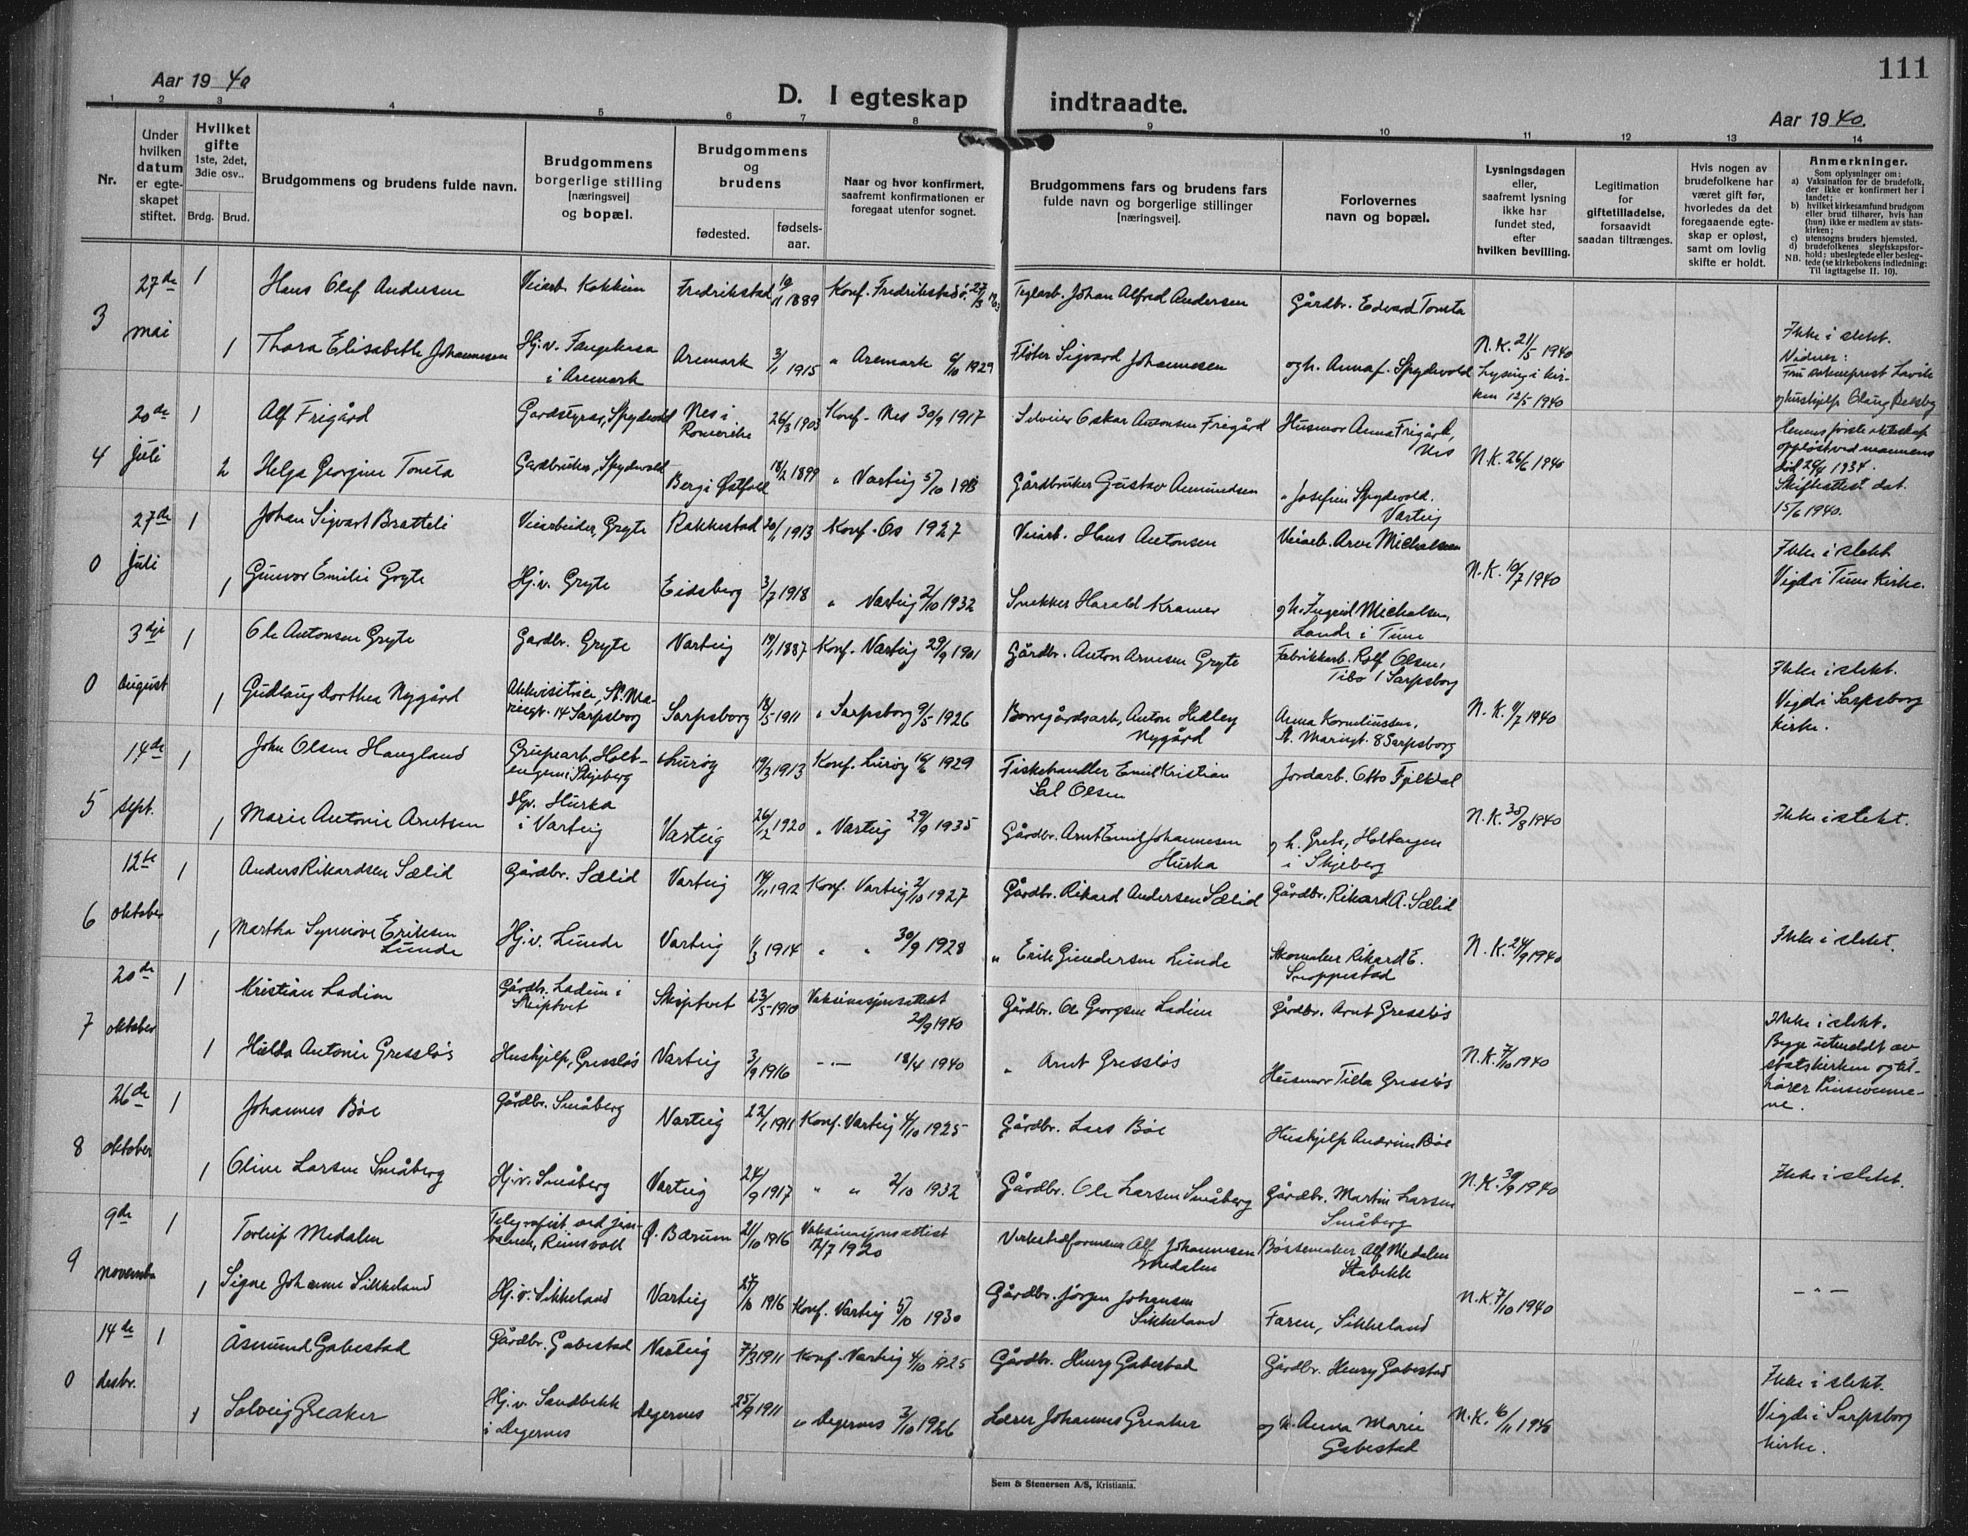 111
Aar 1940
D. I egteskap indtraadte.
Aar 1940.
1 2 3 4 5 6 7 8 9 10 11 12 13 14
Nr.
Under hvilken datum er egteskapet stiftet.
Hvilket gifte 1ste, 2det, 3die osv..
Brdg. Brud.
Brudgommens og brudens fulde navn.
Brudgommens borgerlige stilling [næringsvei] og bopæl.
Brudgommens og brudens
fødested.
fødselsaar.
Naar og hvor konfirmert, saafremt konfirmationen er foregaat utenfor sognet.
Brudgommens fars og brudens fars fulde navn og borgerlige stillinger [næringsvei].
Forlovernes navn og bopæl.
Lysningsdagen eller, saafremt lysning ikke har fundet sted, efter hvilken bevilling.
Legitimation for giftetilladelse, forsaavidt saadan tiltrænges.
Hvis nogen av brudefolkene har været gift før, hvorledes da det foregaaende egteskap er opløst, samt om lovlig skifte er holdt.
Anmerkninger.
Som oplysninger om:
a) Vaksination for de brudefolk, der ikke er konfirmert her i landet;
b) hvilket kirkesamfund brudgom eller brud tilhører, hvis han (hun) ikke er medlem av statskirken;
c) utensogns bruders hjemsted.
d) brudefolkenes slegtskapsforhold: ubeslegtede eller beslegtede (se kirkebokens indledning: Til iagttagelse II. 10).
NB.
3 27de mai
1 Hans Olef Andersen Veiarb. Kokkim Fredrikstad 1889 Konf. Fredrikstad Teglarb. Johan Alfred Andersen Gårdbr. Edvard Toneta
1 Thora Elisabeth Johannesen Hj.v. Fangekasa i Aremark Aremark 3/1 1915 " Aremark 6/10 1929 Fløter Sigvard Johannesen og h. Anna f. Spydevold N.K. 21/5 1940 Lysing i kirken 12/5 1940
Ikke i slekt. Vidner:
4 20de juli
1 Alf Frigård Gardstyrar, Spydevold Nes i Romerike 26/3 1903 Konf. Nes 30/9 1917 Oskar Antonsen Frigård Husmor Anna Frigård, Nes
2 Helga Georgine Toneta Gardbruker, Spydevold Berg i Østfold 18/2 1899 " Varteig 5/10 1913 Gårdbruker Gustav Amundsen " Josefine Spydevold. Varteig N.K. 26/6 1940
første ekteskap oppløst ved mannens død 1934. Skifteattest dat. 15/6 1940.
0 27de juli
1 Johan Sigvart Bratteli Veiarbeider, Gryte Rakkestad 20/1 1913 Konf. Os 1927 Veiarb. Hans Antonsen Veiarb. Arve Michalsen
1 Gunvor Emilie Gryte Hj.v. Gryte Eidsberg 3/7 1918 " Varteig 2/10 1932 Snekker Harald Kramer og h. Ingrid Michalsen, Lande i Tune N.K. 10/7 1940
Ikke i slekt. Vigd i Tune kirke.
0 3dje August
1 Ole Antonsen Gryte Gardbr. Gryte Varteig 19/1 1887 Konf. Varteig 29/9 1901 Gårdbr. Anton Arnesen Gryte Fabrikkarb. Rolf Olsen, Tibo i Sarpsborg
1 Gudlaug Dorthea Nygård Akkvisitrise, St. Mariegt. 14 Sarpsborg Sarpsborg 18/5 1911 " Sarpsborg 9/5 1926 Borregårdsarb. Anton Hedley Nygård Anna Korneliussen, St. Mariegt. 8 Sarpsborg N.K. 9/7 1940
Ikke i slekt. Vigd i Sarpsborg kirke.
5 14de sept.
1 John Olsen Haugland Grupearb. Holtengen i Skjeberg Lurøy 19/3 1913 Konf. Lurøy 1929 Fiskehandler Emil Kristian Sal Olsen Jordarb. Otto Fjelldal
1 Marie Antonie Arntsen Hjv. Hurka i Varteig Varteig 26/12 1920 " Varteig 29/9 1935 Gårdbr. Arnt Emil Johannesen Hurka og h. Grete, Holtengen i Skjeberg N.K. 30/8 1940
Ikke i slekt.
6 12te oktober
1 Anders Rikardsen Sælid Gårdbr. Sælid Varteig 14/11 1912 Konf. Varteig 2/10 1927 Gårdbr. Rikard Andersen Sælid Gårdbr. Rikard A. Sælid
1 Martha Synnøve Eriksen Lunde Hj.v. Lunde Varteig 1/3 1914 " " 30/9 1928 " Erik Gundersen Lunde Skomaker Rikard E. Snoppestad N.K. 24/9 1940
Ikke i slekt.
7 20de oktober
1 Kristian Ladim Gårdbr. Ladim i Skiptvet Skiptvet 23/5 1910 Vaksinasjonsattest 20/9 1940 Gårdbr. Ole Georgsen Ladim Gårdbr. Arnt Gressløs
1 Hilda Antonie Gressløs Hushjelp, Gressløs Varteig 3/9 1916 —"— 18/4 1940 " Arnt Gressløs Husmor Tilla Gressløs N.K. 7/10 1940
Ikke i slekt. Begge utmeldt av statskirken og tilhører Pinsevennene.
8 26de oktober
1 Johannes Bøe Gårdbr. Småberg Varteig 22/1 1911 Konf. Varteig 4/10 1925 Gårdbr. Lars Bøe Hushjelp Andrine Bøe
1 Oline Larsen Småberg Hj.v. Småberg Varteig 24/9 1917 " " 2/10 1932 Gårdbr. Ole Larsen Småberg Gårdbr. Martin Larsen Småberg N.K. 30/9 1940
Ikke i slekt.
9 9de november
1 Torleif Medalen Telegrafist ved jernbanen, Reinsvoll Ø. Bærum 21/10 1916 Vaksinasjonsattest 12/7 1920 Verkstedformann Alf Johannesen Medalen Børsemaker Alf Medalen Stabekk
1 Signe Johanne Sikkeland Hj.v. Sikkeland Varteig 27/10 1916 Konf. Varteig 5/10 1930 Gårdbr. Jørgen Johansen Sikkeland Faren, Sikkeland N.K. 7/10 1940
—"—
0 14de desbr.
1 Åsmund Gabestad Gårdbr. Gabestad Varteig 7/3 1911 Konf. Varteig 4/10 1925 Gårdbr. Henry Gabestad Gårdbr. Henry Gabestad
1 Solveig Greaker Hj.v. Sandbekk i Degernes Degernes 25/9 1911 " Degernes 3/10 1926 Lærer Johannes Greaker og h. Anna Marie Gabestad N.K. 16/11 1940
Ikke i slekt. Vigd i Sarpsborg kirke.
Sem & Stenersen A/S, Kristiania.